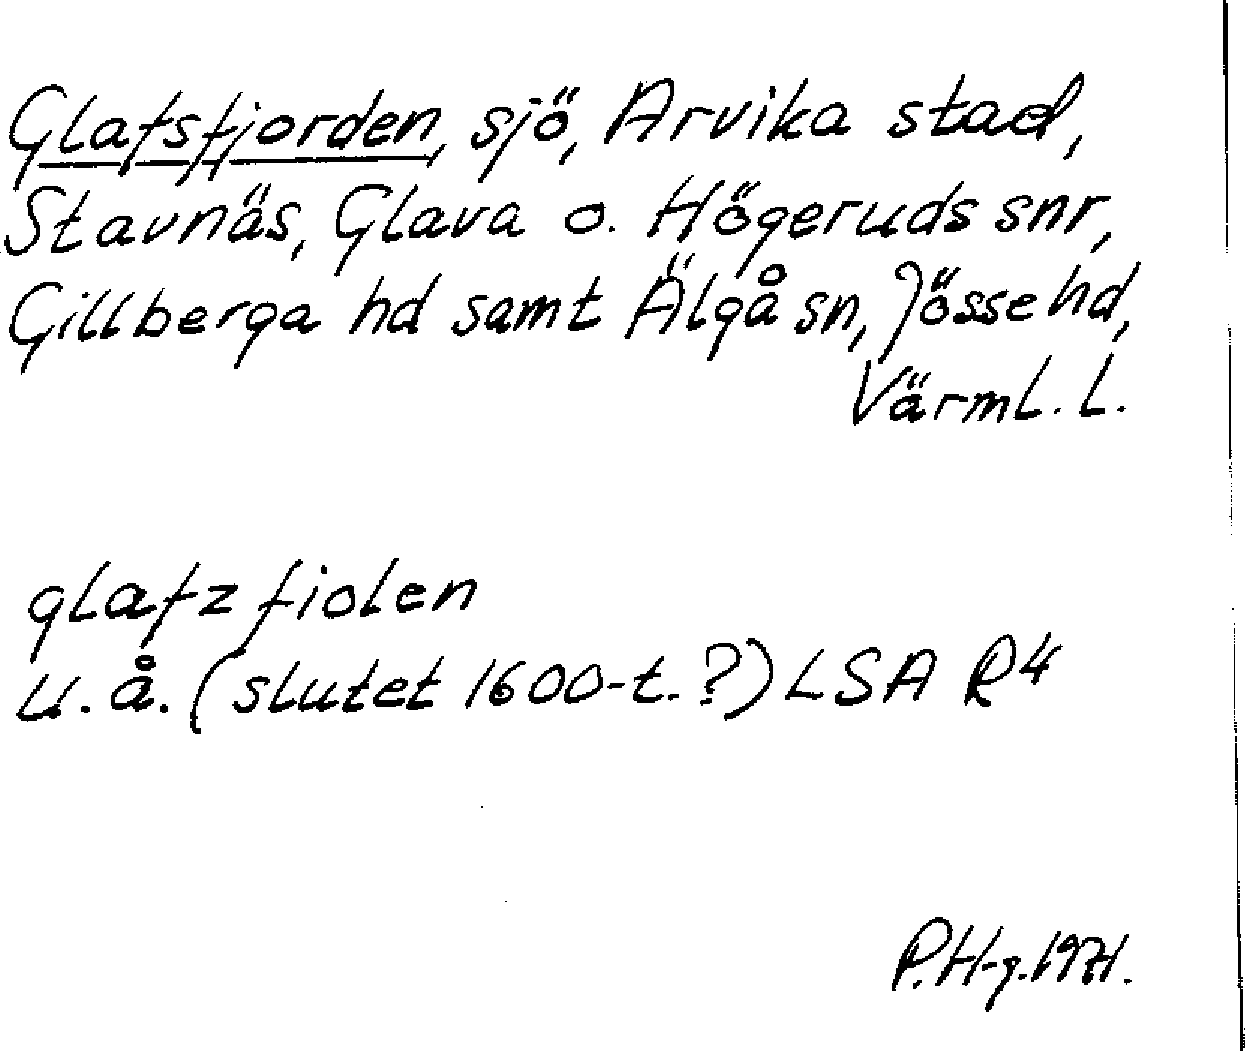 Glafsfjorden, sjö, Arvika stad,
Stavnäs, Glava o. Högeruds snr,
Gillberga hd samt Älgå sn, Jösse hd,
Värml. l.
glafz fiolen
u. å. (slutet 1600-t. ?) LSA R4
P. H-g. 1971.